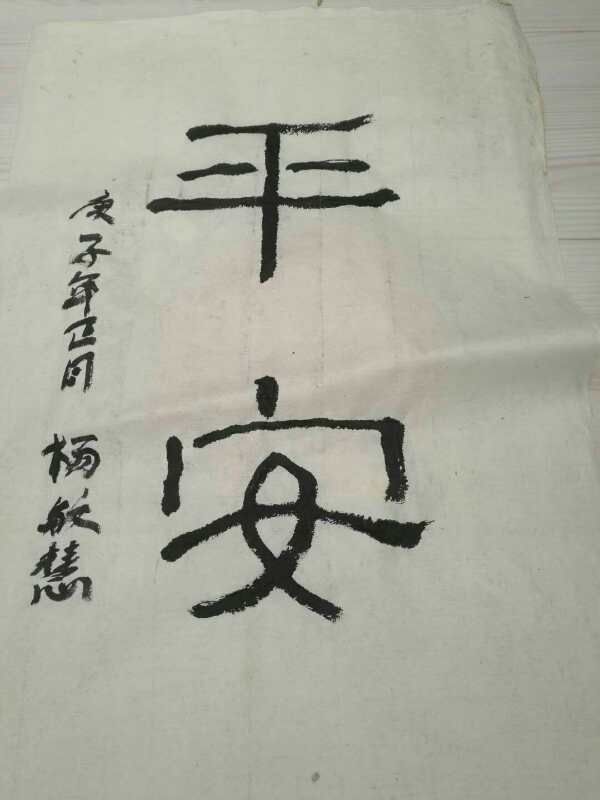 平安
庚子年正月
杨敏慧